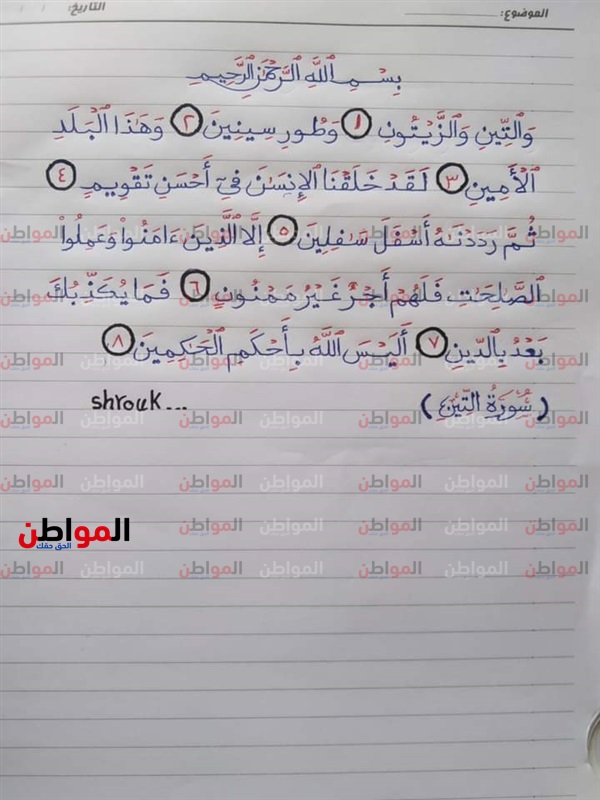 الموضوع: التاريخ: / /
بِسْمِ ٱللَّهِ ٱلرَّحْمَٰنِ ٱلرَّحِيمِ
وَٱلتِّينِ وَٱلزَّيْتُونِ ١ وَطُورِ سِينِينَ ٢ وَهَٰذَا ٱلْبَلَدِ
ٱلْأَمِينِ ٣ لَقَدْ خَلَقْنَا ٱلْإِنسَٰنَ فِىٓ أَحْسَنِ تَقْوِيمٍ ٤
ثُمَّ رَدَدْنَٰهُ أَسْفَلَ سَٰفِلِينَ ٥ إِلَّا ٱلَّذِينَ ءَامَنُوا۟ وَعَمِلُوا۟
ٱلصَّٰلِحَٰتِ فَلَهُمْ أَجْرٌ غَيْرُ مَمْنُونٍ ٦ فَمَا يُكَذِّبُكَ
بَعْدُ بِٱلدِّينِ ٧ أَلَيْسَ ٱللَّهُ بِأَحْكَمِ ٱلْحَٰكِمِينَ ٨
(سُورَةُ ٱلتِّينِ) shrouk...
المواطن
الحق حقك